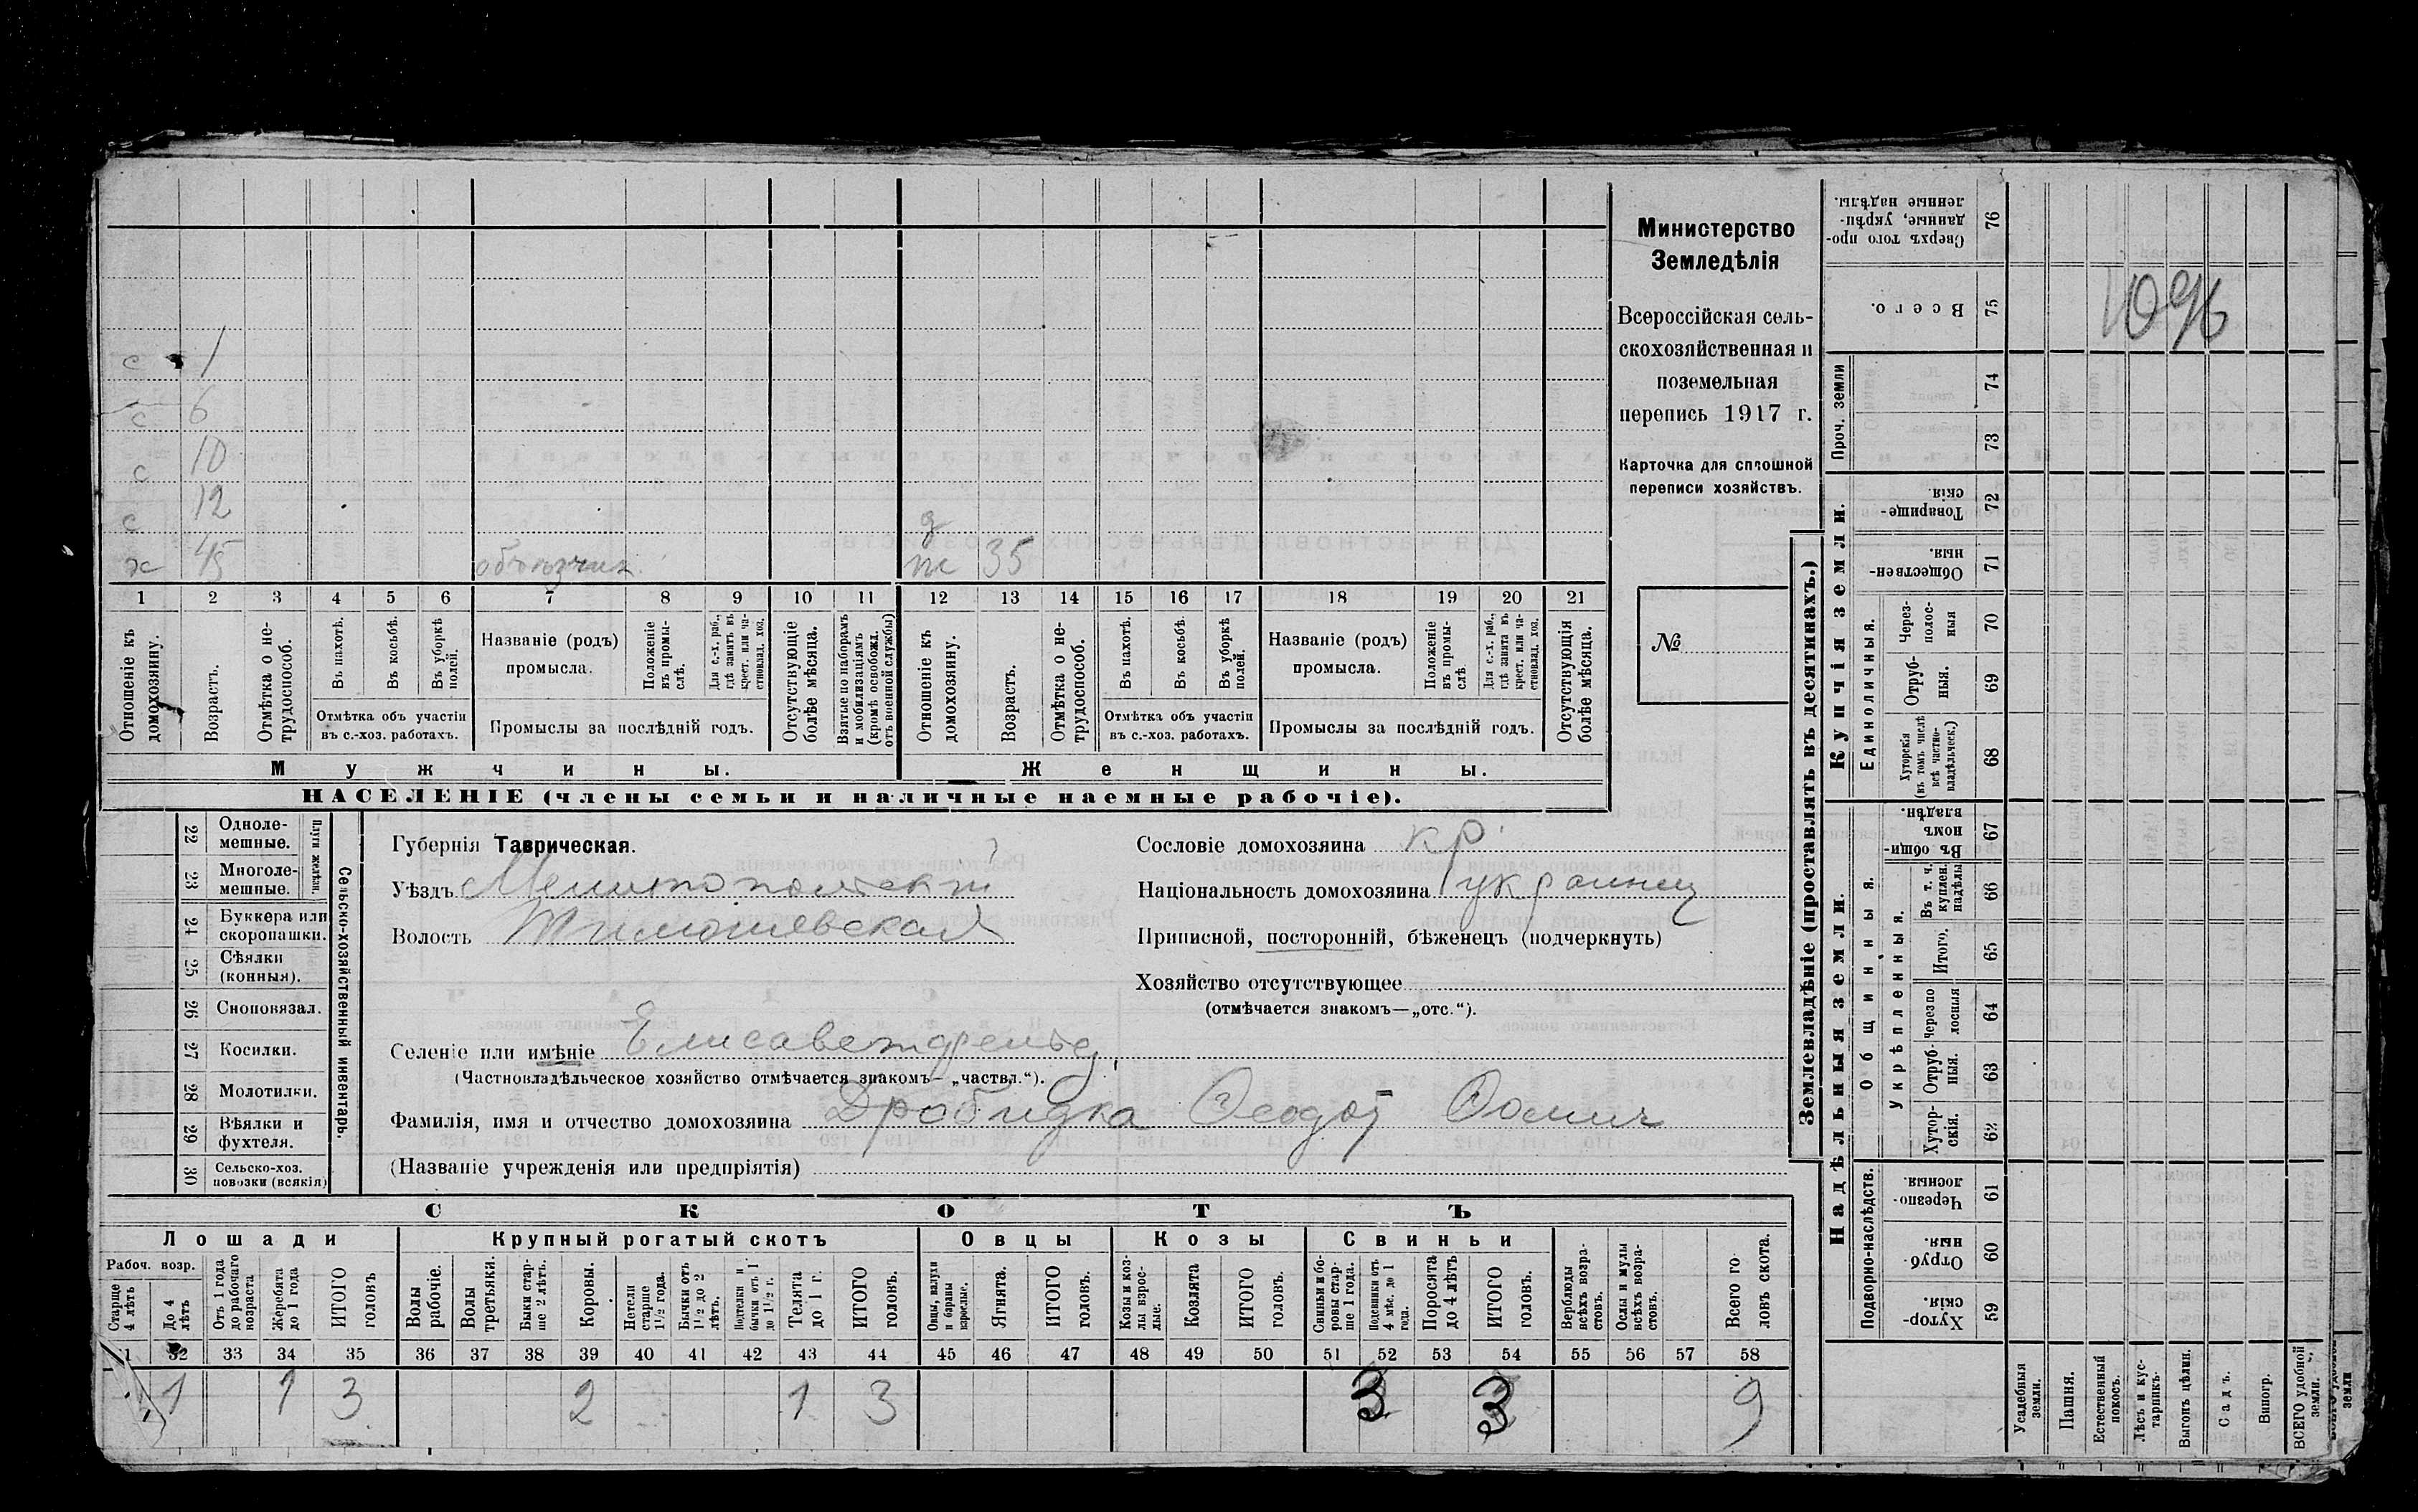 с 1
с 6
с 10
с 12
х 45 объѣзчик
д
ж 35
1 2 3 4 5 6 7 8 9 10 11 12 13 14 15 16 17 18 19 20 21
Отношеніе къ домохозяину.
Возрастъ.
Отмѣтка о нетрудоспособ.
Въ пахотѣ.
Въ косьбѣ.
Въ уборкѣ полей.
Отмѣтка объ участіи
въ с.-хоз. работахъ.
Названіе (родъ)
промысла.
Положеніе въ промыслѣ.
Для с.-х. раб., гдѣ занятъ въ крест. или частновлад. хоз.
Промыслы за послѣдній годъ.
Отсутствующіе болѣе мѣсяца.
Взятые по наборамъ и мобилизаціямъ (кромѣ освобожд. отъ военной службы)
Отношеніе къ домохозяину.
Возрастъ.
Отмѣтка о нетрудоспособ.
Въ пахотѣ.
Въ косьбѣ.
Въ уборкѣ полей.
Отмѣтка объ участіи
въ с.-хоз. работахъ.
Названіе (родъ)
промысла.
Положеніе въ промыслѣ
Для с.-х. раб., гдѣ занятъ въ крест. или частновлад. хоз.
Промыслы за послѣдній годъ.
Отсутствующія болѣе мѣсяца.
Мужчины.
Женщины.
НАСЕЛЕНІЕ (члены семьи и наличные наемные рабочіе).
Министерство
Земледѣлія
Всероссійская сель-
скохозяйственная и
поземельная
перепись 1917 г.
Карточка для сплошной
переписи хозяйствъ.
№
22 Однолемешные.
23 Многолемешные.
Плуги желѣзн.
24 Буккера или скоропашки.
25 Сѣялки (конныя).
26 Сноповязал.
27 Косилки.
28 Молотилки.
29 Вѣялки и фухтеля.
30 Сельско-хоз. повозки (всякія)
Сельско-хозяйственный инвентарь.
Губернія Таврическая.
Уѣздъ Мелитопольскій
Волость Тимошевская
Сословіе домохозяина кр.
Національность домохозяина украинец
Приписной, посторонній, бѣженецъ (подчеркнуть)
Хозяйство отсутствующее
(отмѣчается знакомъ—„отс.“).
Селеніе или имѣніе Елисаветфельд
(Частновладѣльческое хозяйство отмѣчается знакомъ— „частвл.“).
Фамилія, имя и отчество домохозяина Дробидка Ѳеодот Ѳомич
(Названіе учрежденія или предпріятія)
СКОТЪ
Лошади
Крупный рогатый скотъ
Овцы
Козы
Свиньи
Рабоч. возр.
Старще 4 лѣтъ
До 4 лѣтъ
Отъ 1 года до рабочаго возраста
Жеребята до 1 года
ИТОГО головъ
Волы рабочіе.
Волы третьяки.
Быки старше 2 лѣтъ.
Коровы.
Нетели старше 1½ года.
Бычки отъ 1½ до 2 лѣтъ.
Подтелки и бычки отъ 1 до 1½ г.
Телята до 1 г.
ИТОГО головъ.
Овцы, валухи и бараны взрослые.
Ягнята.
ИТОГО головъ.
Козы и козлы взрослые.
Козлята
ИТОГО головъ.
Свиньи и боровы старше 1 года.
Подсвинки отъ 4 мѣс. до 1 года.
Поросята до 4 лѣтъ
ИТОГО головъ.
Верблюды всѣхъ возрастовъ.
Ослы и мулы всѣхъ возрастовъ.
Всего головъ скота.
1 32 33 34 35 36 37 38 39 40 41 42 43 44 45 46 47 48 49 50 51 52 53 54 55 56 57 58
1 1 3 2 1 3 3 3 9
Землевладѣніе (проставлять въ десятинахъ.)
Купчія земли.
Надѣльныя земли.
Сверхъ того проданные, укрѣпленные надѣлы. 76
Всего. 75
1096
Проч. земли
74
73
Товарищескія. 72
Общественныя. 71
Единоличныя.
Черезполосныя 70
Отрубныя. 69
Хуторскія (въ томъ числѣ всѣ частновладѣльческ.) 68
Общинныя.
Въ общинномъ владѣн. 67
Укрѣпленныя.
Въ т. ч. куплен. надѣлы 66
Итого. 65
Черезполосныя 64
Отрубныя. 63
Хуторскія. 62
Подворно-наслѣдств.
Черезполосныя. 61
Отрубныя. 60
Хуторскія. 59
Усадебныя земли.
Пашня.
Естественный покосъ.
Лѣсъ и кустарникъ.
Выгонъ цѣлин.
Садъ.
Виногр.
ВСЕГО удобной земли.